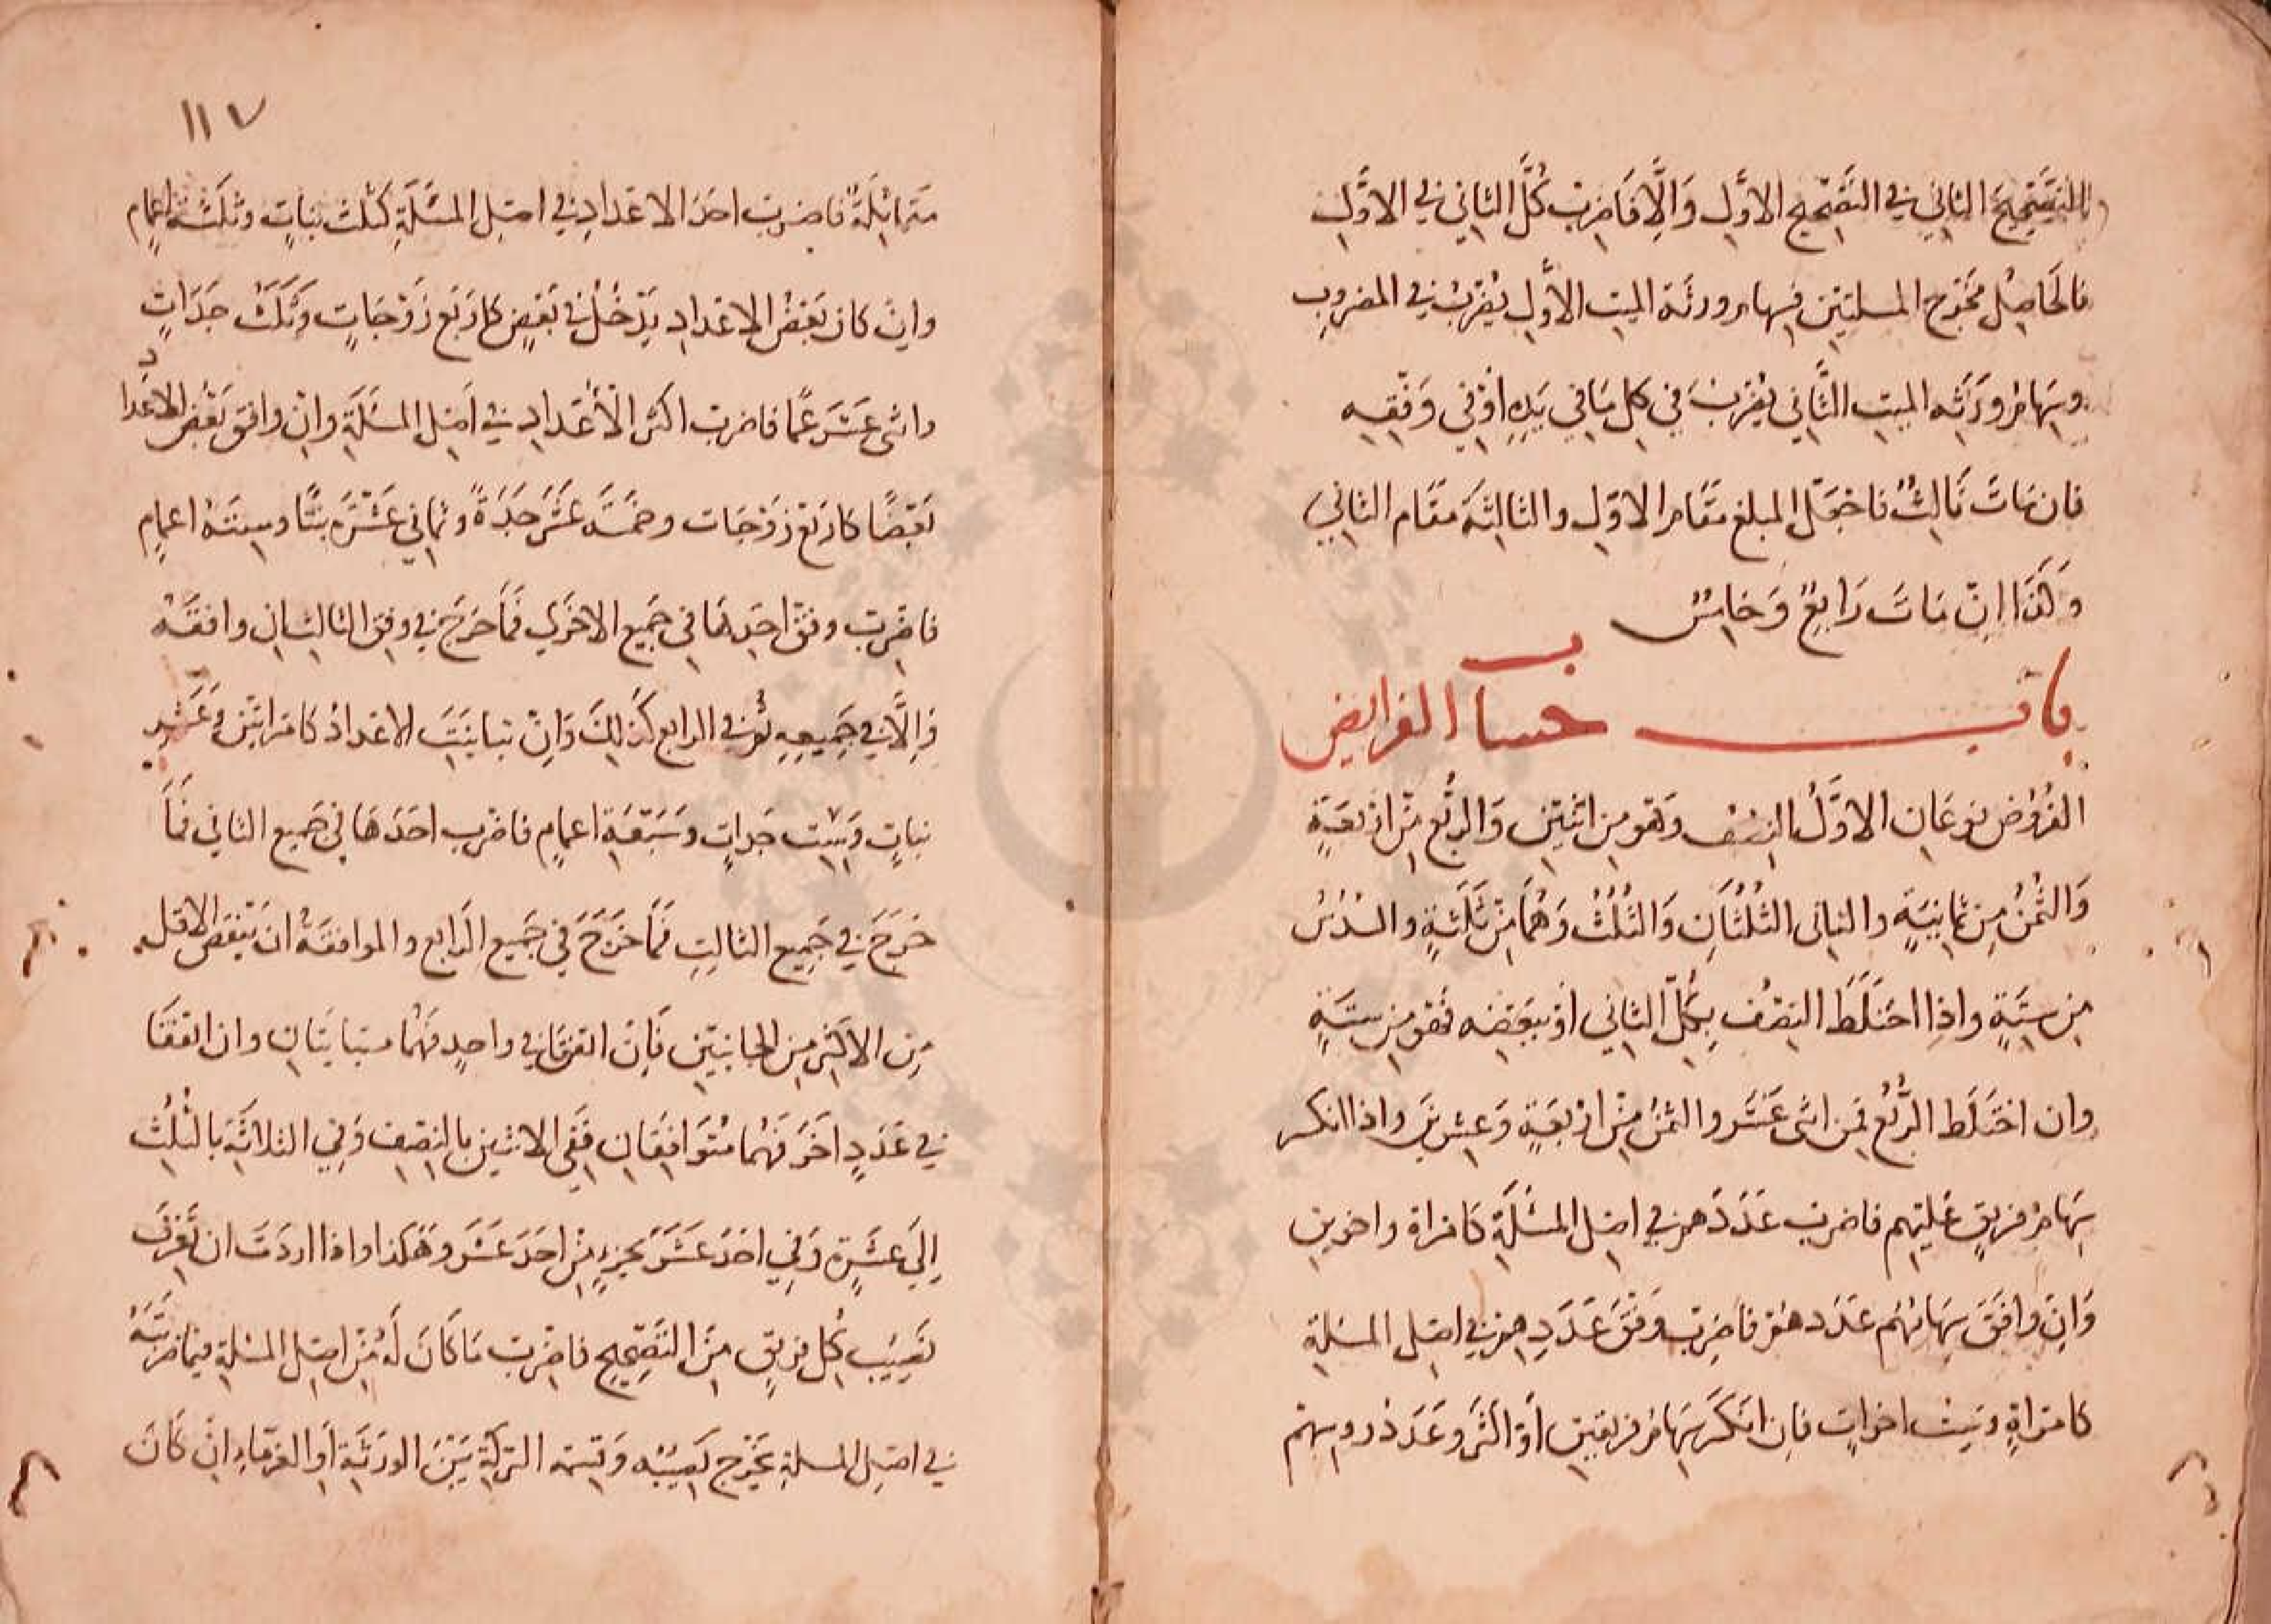 التصحيح الثاني في التصحيح الاول والا فاضرب كل الثاني في الاول
فالحاصل مخرج المسلتين فسهام ورثة الميت الاول يضرب في المضروب
وسهام ورثه الميت الثاني يضرب في كل ما في يده او في وفقه
فان مات ثالث فاجعل المبلغ مقام الاول والثالثة مقام الثاني
وكذا ان مات رابع وخامس
باب حساب الفرايض
الفروض نوعان الاول النصف وهو من اثنين والربع من اربعة
والثمن من ثمانية والثاني الثلثان والثلث وهما من ثلثة والسدس
من ستة واذا اختلط النصف بكل الثاني او ببعضه فهو من ستة
وان اختلط الربع فمن اثنى عشر والثمن من اربعة وعشرين واذا انكسر
سهام فريق عليهم فاضرب عددهم في اصل المسئلة كامراة واخوين
وان وافق سهامهم عددهم فاضرب وفق عددهم في اصل المسئلة
كامراة وست اخوات فان انكسر سهام فريقين او اكثر وعدد روسهم
١١٧
متماثلة فاضرب احد الاعداد في اصل المسئلة كثلث بنات وثلثة اعمام
وان كان بعض الاعداد يدخل في بعض كاربع زوجات وثلث جدات
واثنى عشر عما فاضرب اكثر الاعداد في اصل المسئلة وان وافق بعض الاعداد
بعضا كاربع زوجات وخمسة عشر جدة وثماني عشره بنتا وستة اعمام
فاضرب وفق احدهما في جميع الاخرى فما خرج في وفق الثالث ان وافقه
والا في جميعه ثم في الرابع كذلك وان تباينت الاعداد كامراتين وعشر
بنات وست جدات وسبعة اعمام فاضرب احدها في جميع الثاني فما
خرج في جميع الثالث فما خرج في جميع الرابع والموافقة ان ينقص الاقل
من الاكثر من الجانبين فان اتفقا في واحد فهما متباينان وان اتفقا
في عدد اخر فهما متوافقان ففى الاثنين بالنصف وفي الثلاثة بالثلث
الى عشرة وفي احد عشر بجزء من احد عشر وهكذا واذا اردت ان تعرف
نصيب كل فريق من التصحيح فاضرب ما كان له من اصل المسئلة فيما ضربته
في اصل المسلة يخرج نصيبه وقسمة التركة بين الورثة او الغرماء ان كان